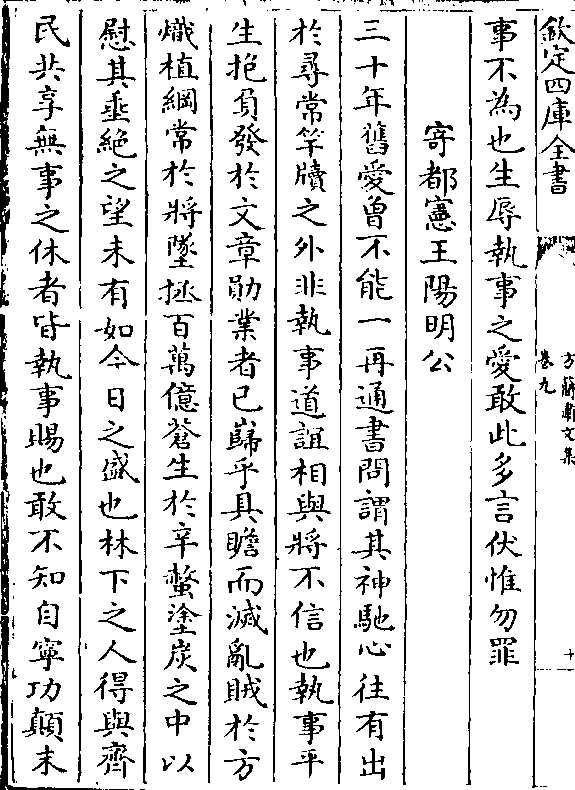 欽定四庫全書
方齋文集
卷九
十
事不為也生辱執事之愛敢此多言伏惟勿罪
寄都憲王陽明公
三十年舊愛曾不能一再通書問謂其神馳心往有出
於尋常竿牘之外非執事道誼相與將不信也執事平
生抱負發於文章勛業者已巋乎具瞻而滅亂賊於方
熾植綱常於將墜拯百萬億蒼生於辛螫塗炭之中以
慰其垂絕之望未有如今日之盛也林下之人得與齊
民共享無事之休者皆執事賜也敢不知自寧功顛末